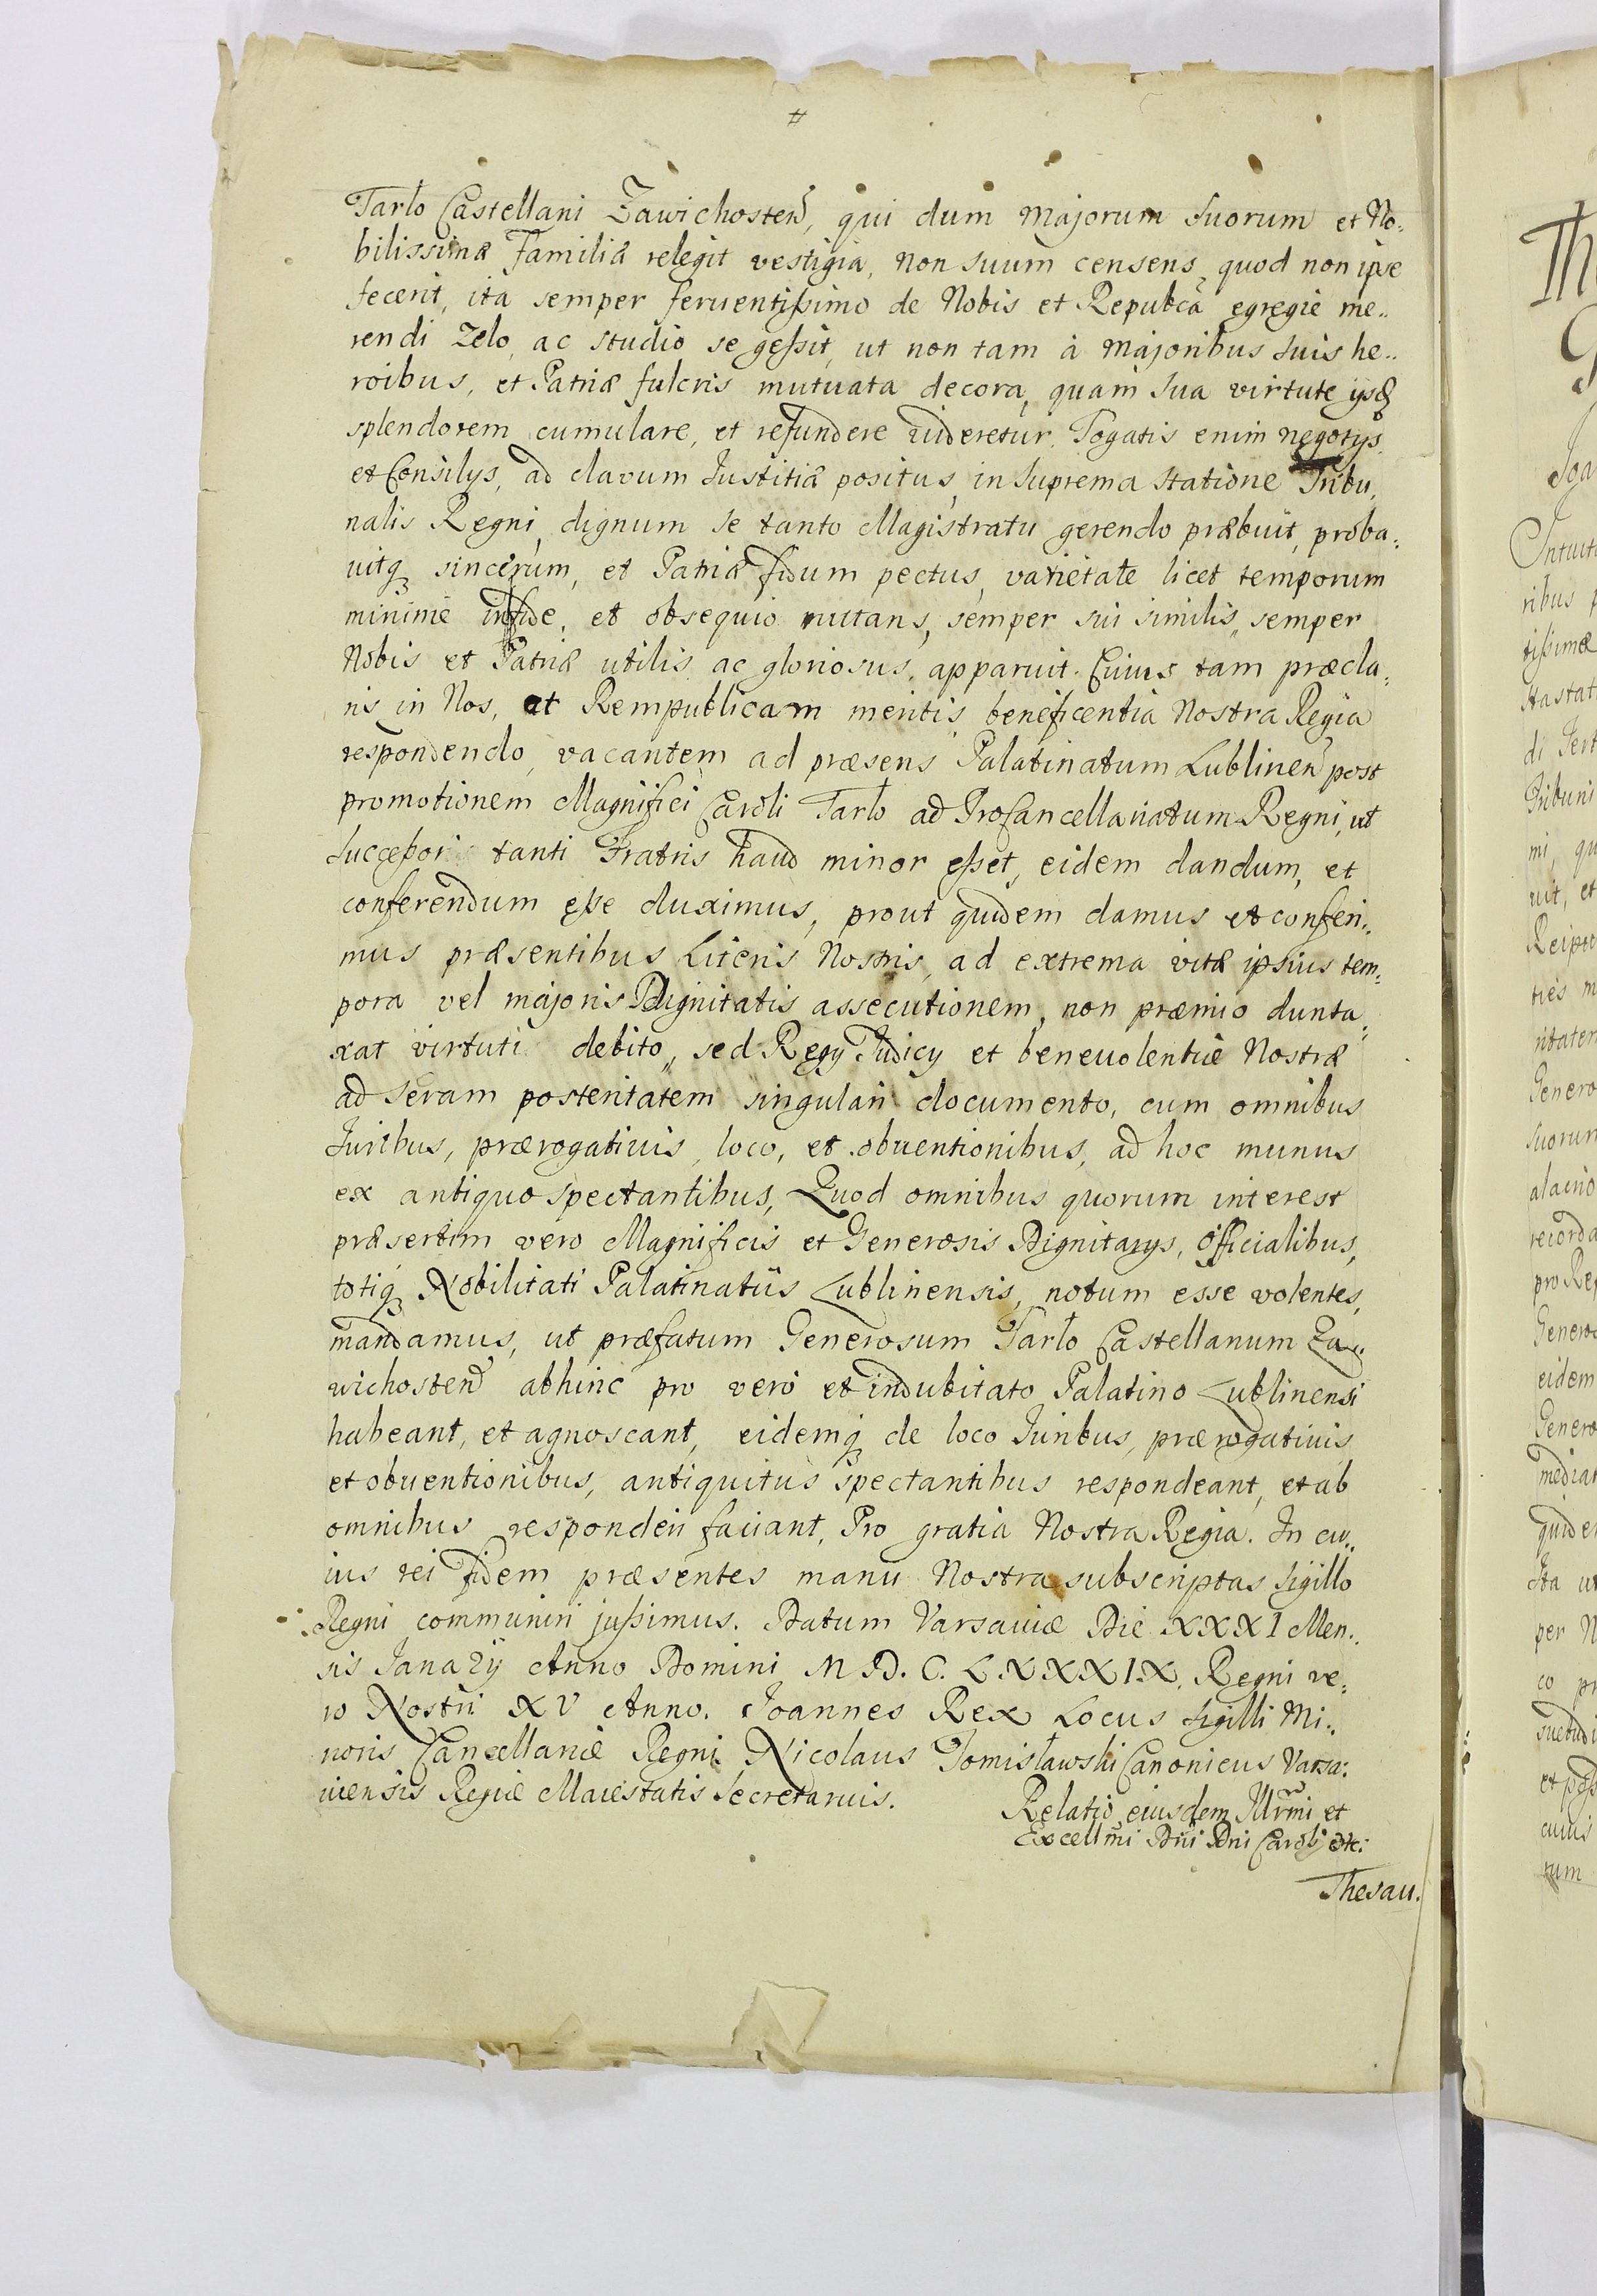 #
Tarło Castellani Zawichosteñ, qui dum majorum suorum et No:
bilissimæ Familiæ relegit vestigia, non suum censens, quod non ipse
fecerit, ita semper ferventissimo de Nobis et Repubca egregie me..
rendi zelo, ac studio se gessit, ut non tam à majoribus suis he..
roibus, et Patriæ fulcris mutuata decora, quam sua virtute ijsq
splendorem cumulare, et refundere videretur. Togatis enim negotijs
et Consilijs, ad clavum Justitiæ positus, in suprema statione Tribu,
nalis Regni, dignum se tanto Magistratu gerendo præbuit, proba:
uitq sincerum, et Patriæ fidum pectus, varietate licet temporum
minimè in fide, et obsequio nutans, semper sui similis, semper
Nobis et Patriæ utilis ac gloriosus, apparuit. Cuius tam præcla:
ris in Nos, et Rempublicam meritis beneficentia Nostra Regia
respondendo, vacantem ad præsens Palatinatum Lublineñ post
promotionem Magnifici Caroli Tarło ad ProCancellariatum Regni, ut
successor tanti Fratris haud minor esset, eidem dandum, et
conferendum esse duximus, prout quidem damus et conferi..
mus præsentibus Literis Nostris, ad extrema vitæ ipsius tem:
pora vel majoris Dignitatis assecutionem, non præmio dunta:
xat virtuti debito, sed Regij Judicij et benevolentiæ Nostræ
ad seram posteritatem singulari documento, cum omnibus
Juribus, prærogativis, loco, et obventionibus, ad hoc munus
ex antiquo spectantibus, Quod omnibus quorum interest
præsertim vero Magnificis et Generosis Dignitarijs, Officialibus,
totiq Nobilitati Palatinatûs Lublinensis, notum esse volentes,
mandamus, ut præfatum Generosum Tarło Castellanum Za:
wichosteñ abhinc pro vero et indubitato Palatino Lublinensi
habeant, et agnoscant, eidemq de loco Juribus, prærogativis
et obventionibus, antiquitus spectantibus respondeant, et ab
omnibus responderi faciant, Pro gratia Nostra Regia. In cu..
ius rei fidem præsentes manu Nostra subscriptas Sigillo
Regni communiri jussimus. Datum Varsaviæ Die XXXI Men..
sis Janarij Anno Domini M.D.C.L.XXXIX. Regni ve:
ro Nostri XV Anno. Joannes Rex Locus Sigilli Mi..
noris Cancellariæ Regni Nicolaus Tomisławski Canonicus Varsa:
uiensis Regiæ Maiestatis Secretarius.
Relatio eiusdem Illrmi et
Excellmi Dñi Dni Caroli etc:
Thesau.